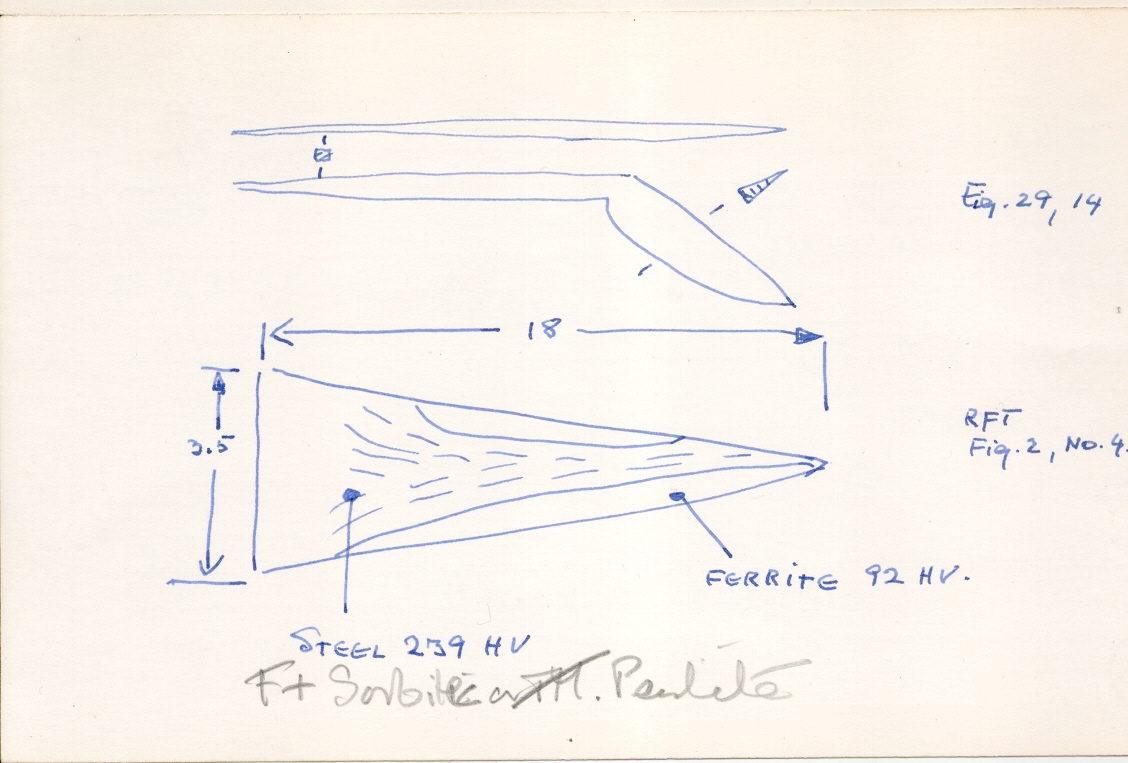 Fig. 29, 14
18
3.5
RFT
Fig. 2, No. 4.
FERRITE 92 HV.
STEEL 239 HV
F + Sorbite or Pearlite